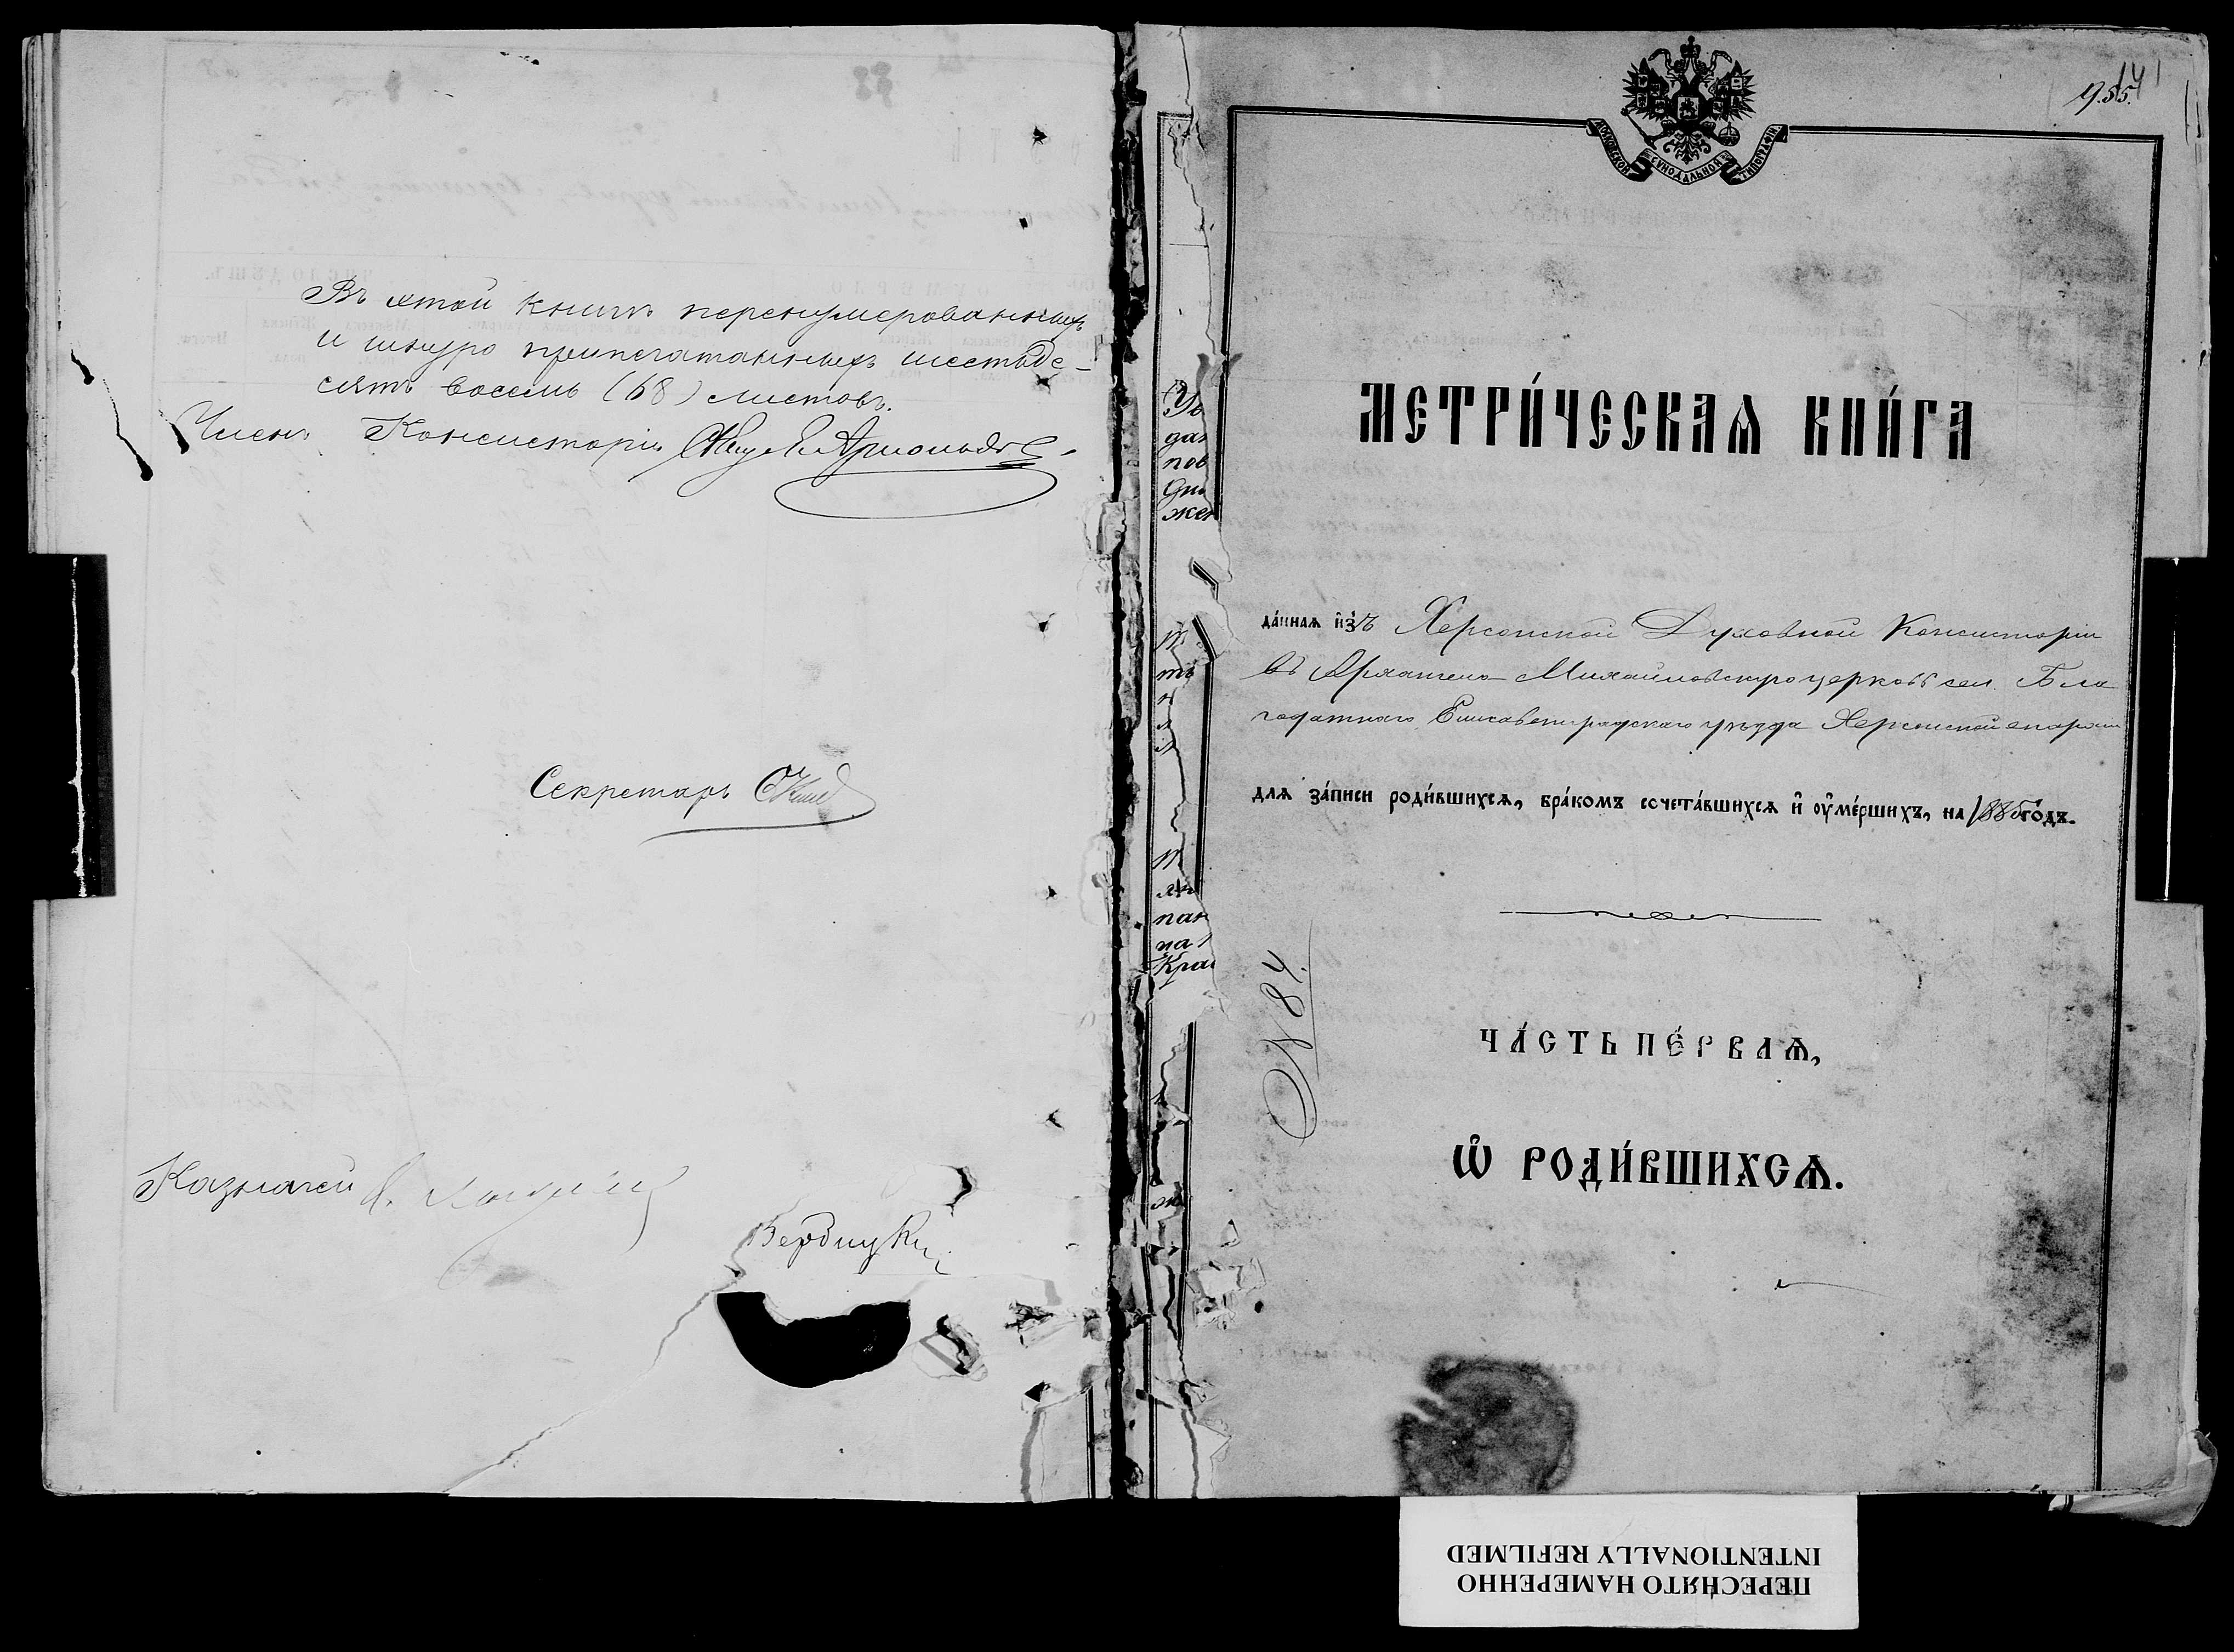 Въ этой книгѣ перенумерованныхъ
и шнуро припечатанныхъ шестьде-
сятъ восемь (68) листовъ.
Членъ Консисторіи
Секретарь
Казначей
Вербицкій
МОСКОВСКОЙ СѴНОДАЛЬНОЙ ТИПОГРАФІИ
МЕТРИ́ЧЕСКАѦ КНИ́ГА
да́ннаѧ и҆зъ Херсонской Духовной Консисторіи
въ Архангело-Михайловскую церковь сел. Бла
годатнаго Елисаветградскаго уѣзда Херсонской епархіи
длѧ за́писи роди́вшихсѧ, бра́комъ сочета́вшихсѧ и҆ оу҆ме́ршихъ, на 1885 го́дъ.
№ 84.
ЧА́СТЬ ПЕ́РВАѦ,
Ѡ҆ РОДИ́ВШИХСѦ.
Ув
дан
пов
жен
пан
на
Крас
ПЕРЕСНЯТО НАМЕРЕННО
INTENTIONALLY REFILMED